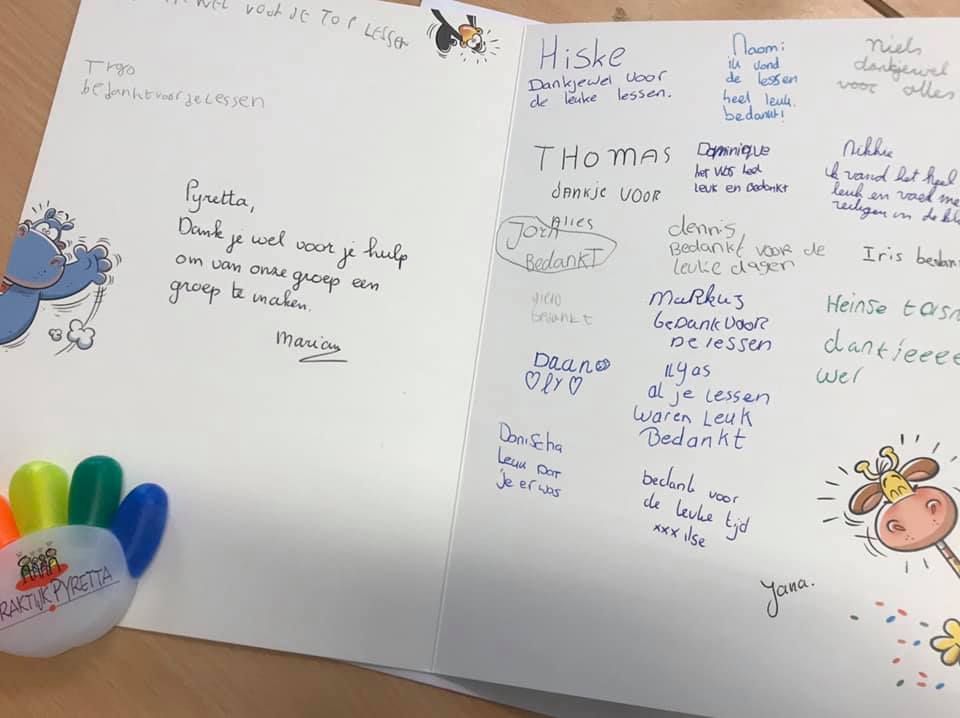 WEL VOOR JE TOP LESSEN
Trgo
bedankt voor je lessen
Pyretta,
Dank je wel voor je hulp
om van onze groep een
groep te maken.
Marian
RAKTIJK PYRETTA
Hiske
Dankjewel voor
de leuke lessen.
Naomi
ik vond
de lessen
heel leuk.
bedankt!
niels
dankjewel
voor alles
THOMAS
DANKJE VOOR
Alles
Dominique
het was heel
leuk en Bedankt
Nikkie
ik vand het heel
leuk en voel me
veiligen in de kl
JORN
BEDANKT
dennis
Bedankt voor de
leuke dagen
Iris bedan
bedankt
Markus
beDANK VOOR
De lessen
Heinse
dankjeeee
wel
Daan
♡ly♡
ilyas
al je lessen
waren Leuk
Bedankt
Donischa
Leuk Dat
je er was
bedank voor
de leuke tijd
xxx ilse
Yana.